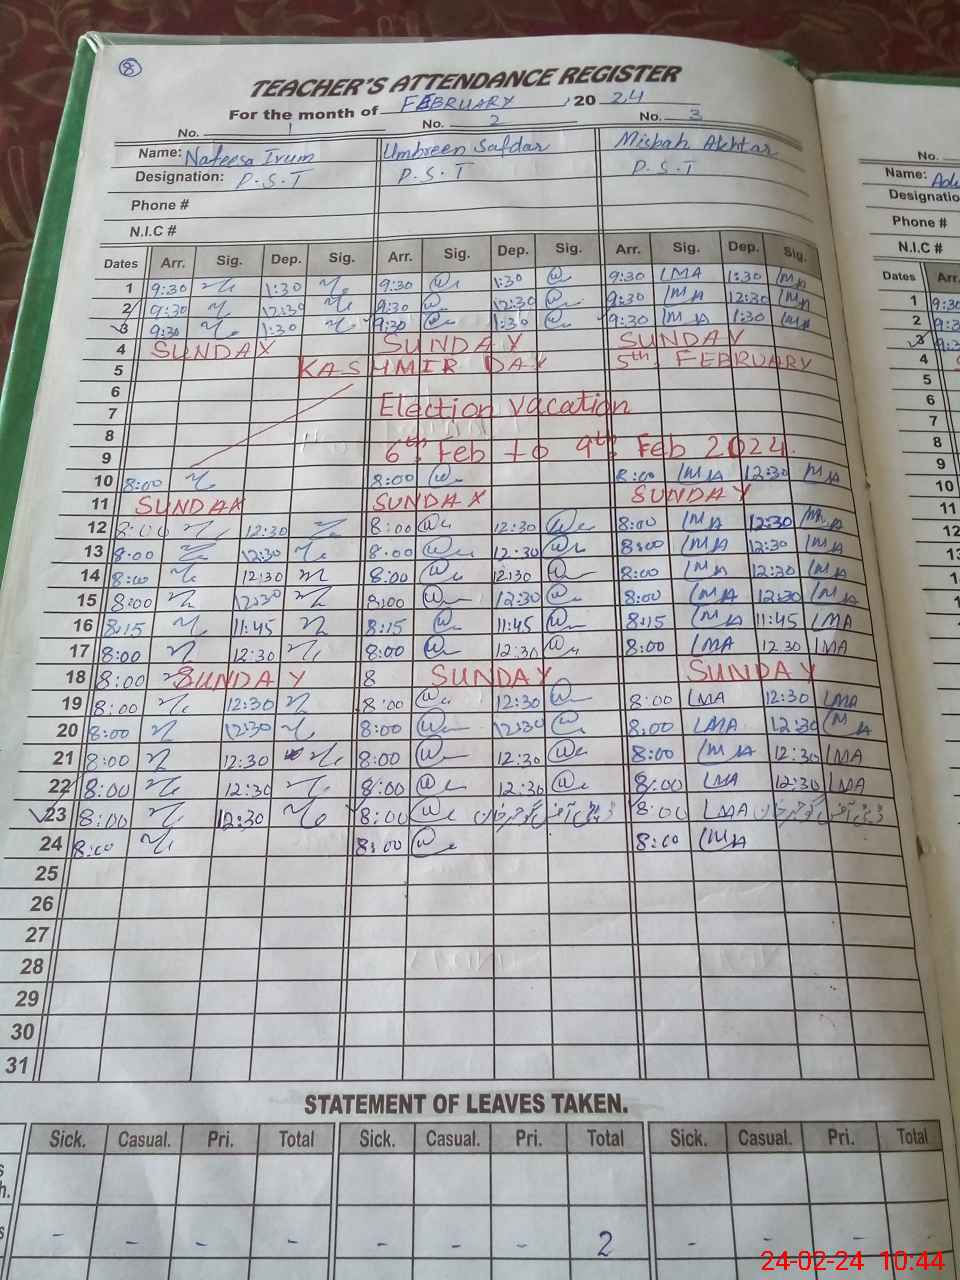 8
TEACHER'S ATTENDANCE REGISTER
For the month of FEBRUARY, 2024
No. 1 No. 2 No. 3
Name: Nafeesa Irum Umbreen Safdar Misbah Akhtar
Designation: P.S.T P.S.T P.S.T
Phone #
N.I.C #
Dates Arr. Sig. Dep. Sig. Arr. Sig. Dep. Sig. Arr. Sig. Dep. Sig.
1 9:30 1:30 9:30 1:30 9:30 MA 1:30 MA
2 9:30 12:30 9:30 12:30 9:30 MA 12:30 MA
3 9:30 1:30 9:30 1:30 9:30 MA 1:30 MA
4 SUNDAY SUNDAY SUNDAY
5 KASHMIR DAY 5th FEBRUARY
6
7 Election vacation
8
9 6th Feb to 9th Feb 2024.
10 8:00 8:00 8:00 MA 12:30 MA
11 SUNDAY SUNDAY SUNDAY
12 8:00 12:30 8:00 12:30 8:00 MA 12:30 MA
13 8:00 12:30 8:00 12:30 8:00 MA 12:30 MA
14 8:00 12:30 8:00 12:30 8:00 MA 12:30 MA
15 8:00 12:30 8:00 12:30 8:00 MA 12:30 MA
16 8:15 11:45 8:15 11:45 8:15 MA 11:45 MA
17 8:00 12:30 8:00 12:30 8:00 MA 12:30 MA
18 8:00 SUNDAY 8 SUNDAY SUNDAY
19 8:00 12:30 8:00 12:30 8:00 MA 12:30 MA
20 8:00 12:30 8:00 12:30 8:00 MA 12:30 MA
21 8:00 12:30 8:00 12:30 8:00 MA 12:30 MA
22 8:00 12:30 8:00 12:30 8:00 MA 12:30 MA
23 8:00 12:30 8:00 8:00 MA
24 8:00 8:00 8:00 MA
25
26
27
28
29
30
31
STATEMENT OF LEAVES TAKEN.
Sick. Casual. Pri. Total Sick. Casual. Pri. Total Sick. Casual. Pri. Total
h.
s - - - - - - - 2 - - -
No.
Name:
Designation
Phone #
N.I.C #
Dates Arr.
1 9:30
2
3
4
5
6
7
8
9
10
11
12
13
24-02-24 10:44